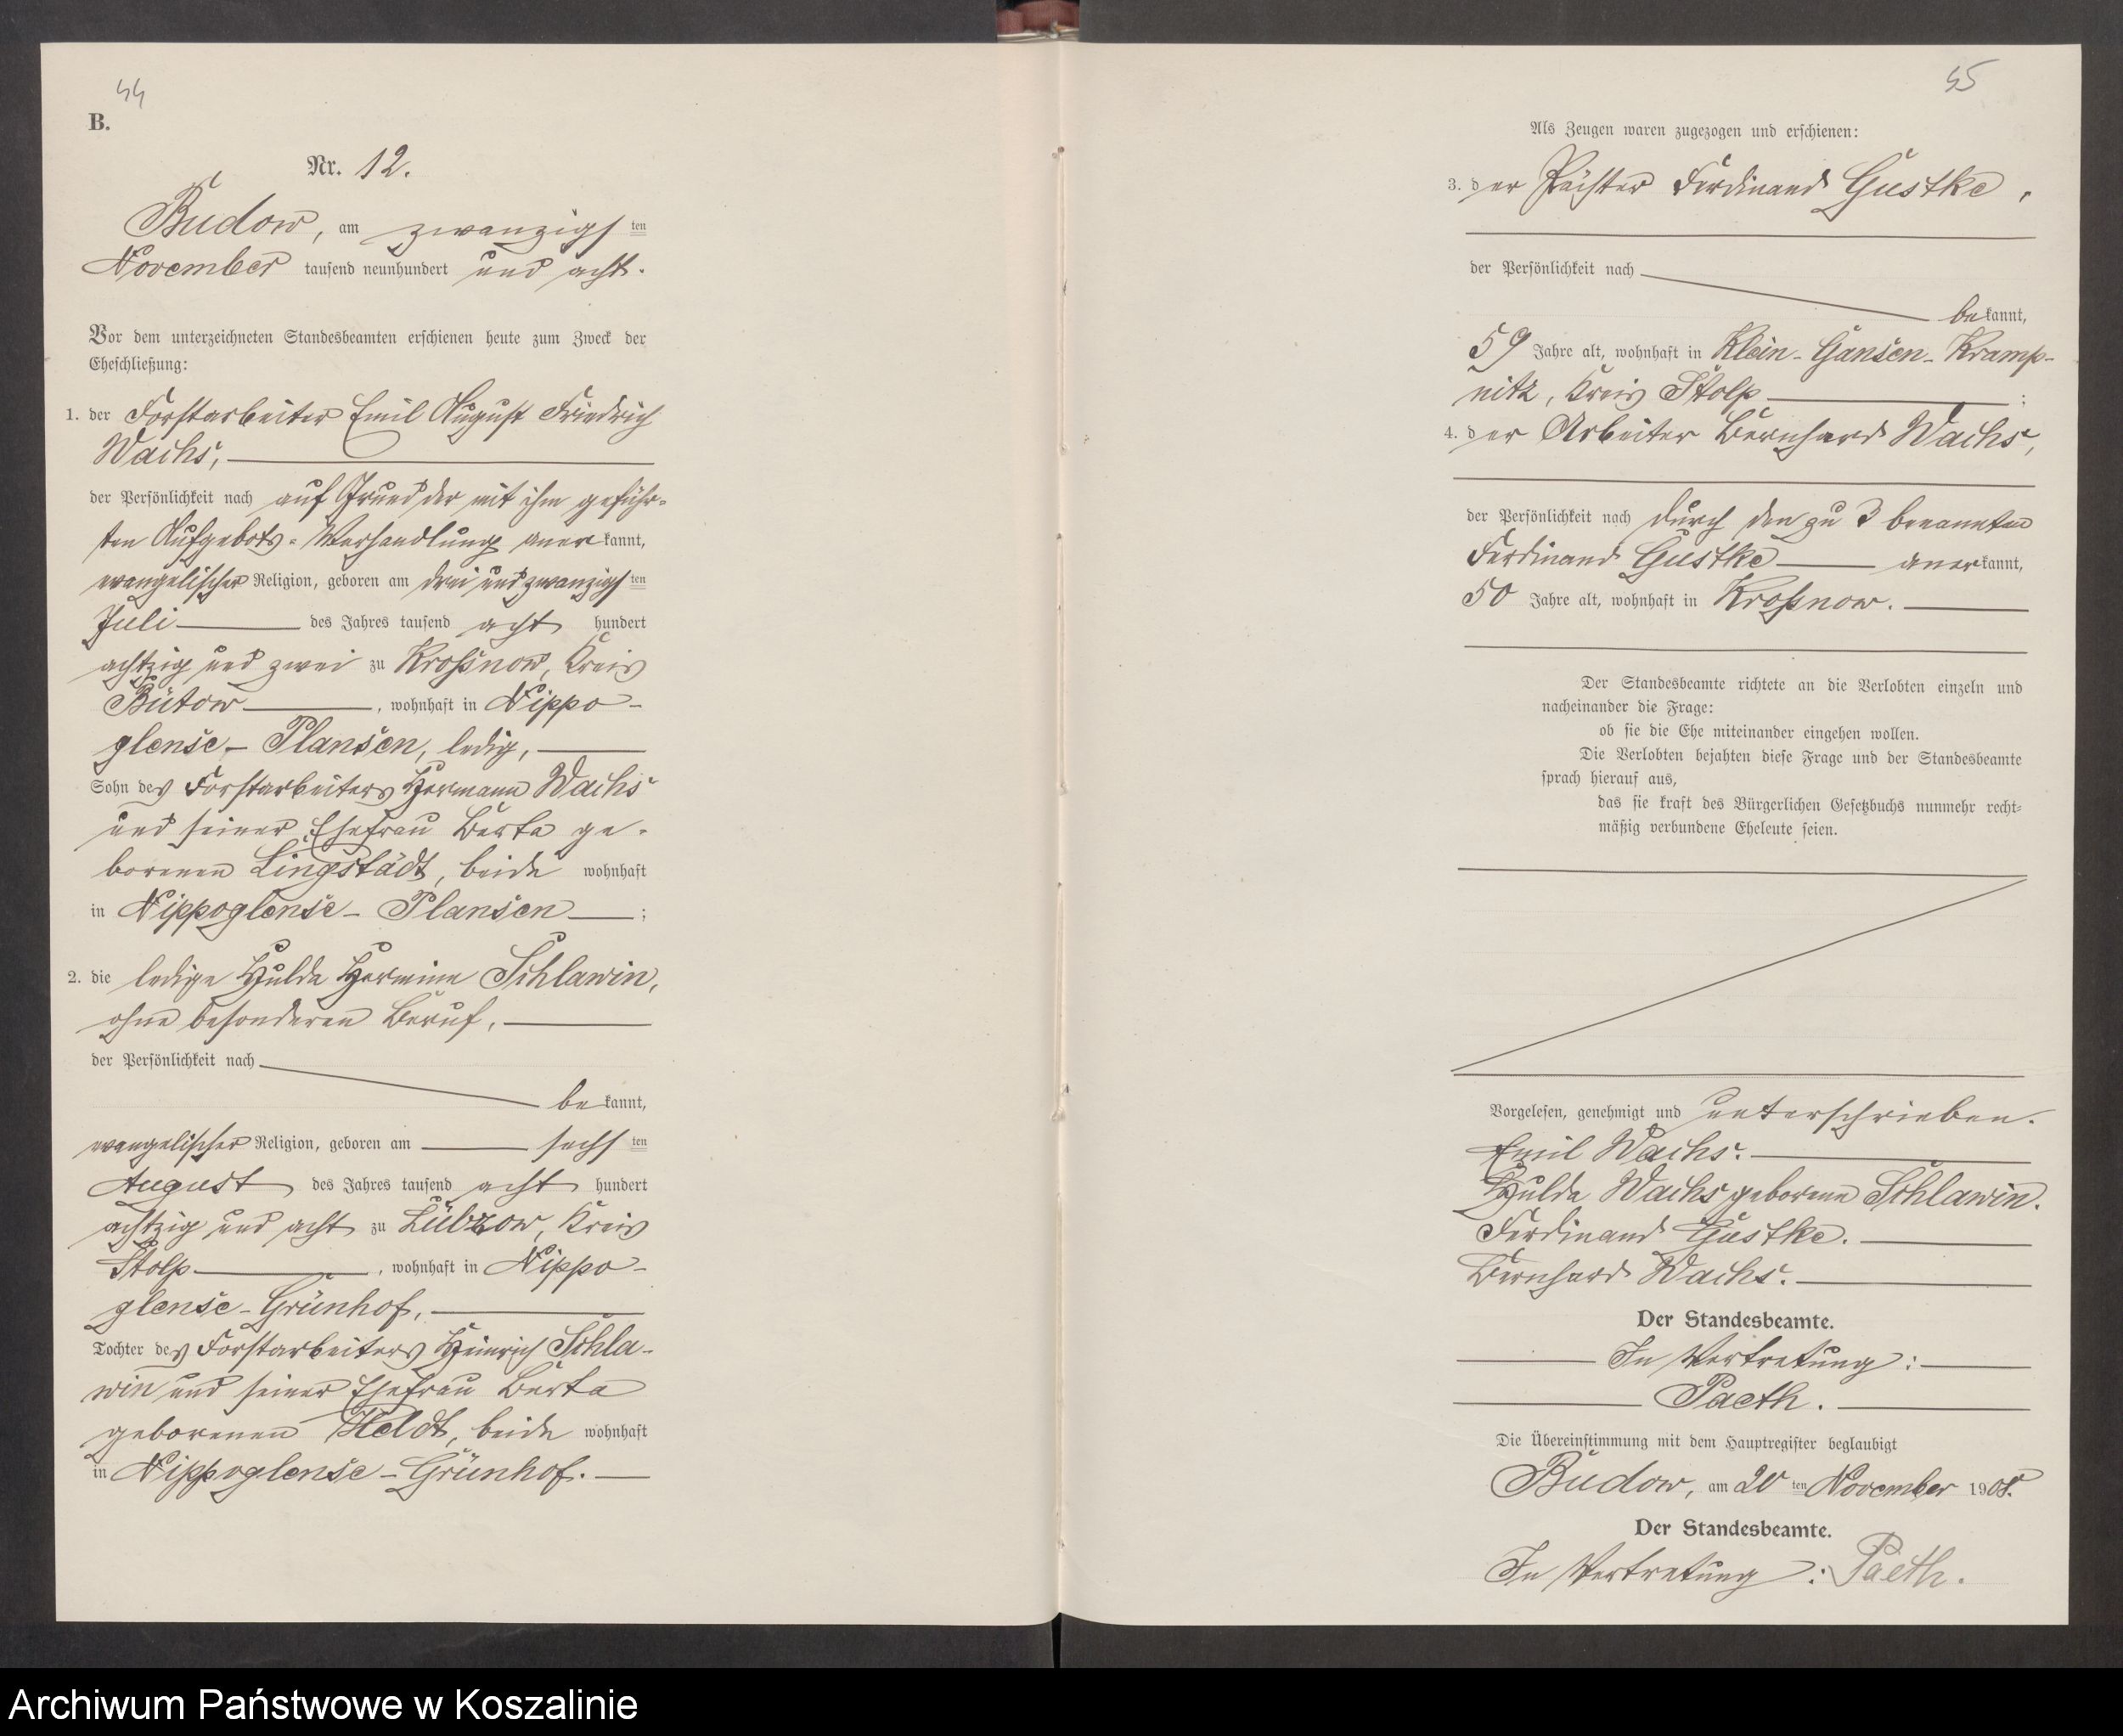 44
B.
Nr. 12.
Budow, am zwanzigsten
November tausend neunhundert und acht.
Vor dem unterzeichneten Standesbeamten erschienen heute zum Zweck der
Eheschließung:
1. der Forstarbeiter Emil August Friedrich
Wachs,
der Persönlichkeit nach auf Grund der mit ihm geführ-
ten Aufgebots-Verhandlung anerkannt,
evangelischer Religion, geboren am drei und zwanzigsten
Juli des Jahres tausend acht hundert
achtzig und zwei zu Kroßnow, Kreis
Bütow, wohnhaft in Nippo-
glense-Plansen, ledig,
Sohn des Forstarbeiters Hermann Wachs
und seiner Ehefrau Berta ge-
borenen Lingstädt, beide wohnhaft
in Nippoglense-Plansen;
2. die ledige Hulda Hermine Schlawin,
ohne besonderen Beruf,
der Persönlichkeit nach
bekannt,
evangelischer Religion, geboren am sechsten
August des Jahres tausend acht hundert
achtzig und acht zu Lübzow, Kreis
Stolp, wohnhaft in Nippo-
glense-Grünhof,
Tochter des Forstarbeiters Heinrich Schla-
win und seiner Ehefrau Berta
geborenen Heldt, beide wohnhaft
in Nippoglense-Grünhof.
45
Als Zeugen waren zugezogen und erschienen:
3. der Pächter Ferdinand Gustke,
der Persönlichkeit nach
bekannt,
59 Jahre alt, wohnhaft in Klein-Gansen-Kramp-
nitz, Kreis Stolp;
4. der Arbeiter Bernhard Wachs,
der Persönlichkeit nach durch den zu 3 benannten
Ferdinand Gustke anerkannt,
50 Jahre alt, wohnhaft in Kroßnow.
Der Standesbeamte richtete an die Verlobten einzeln und
nacheinander die Frage:
ob sie die Ehe miteinander eingehen wollen.
Die Verlobten bejahten diese Frage und der Standesbeamte
sprach hierauf aus,
das sie kraft des Bürgerlichen Gesetzbuchs nunmehr recht-
mäßig verbundene Eheleute seien.
Vorgelesen, genehmigt und unterschrieben.
Emil Wachs.
Hulda Wachs geborene Schlawin.
Ferdinand Gustke.
Bernhard Wachs.
Der Standesbeamte.
In Vertretung:
Paeth.
Die Übereinstimmung mit dem Hauptregister beglaubigt
Budow, am 20ten November 1908.
Der Standesbeamte.
In Vertretung: Paeth.
Archiwum Państwowe w Koszalinie